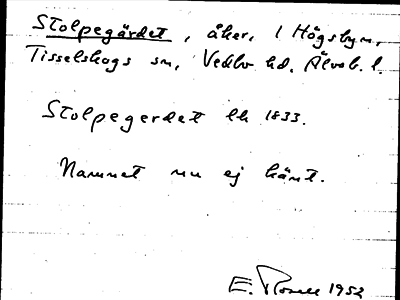 Stolpegärdet, åker, 1 Högsbyn,
Tisselskogs sn, Vedbo hd. Älvsb. l.
Stolpegerdet lh 1833.
Namnet nu ej känt.
E. 1952